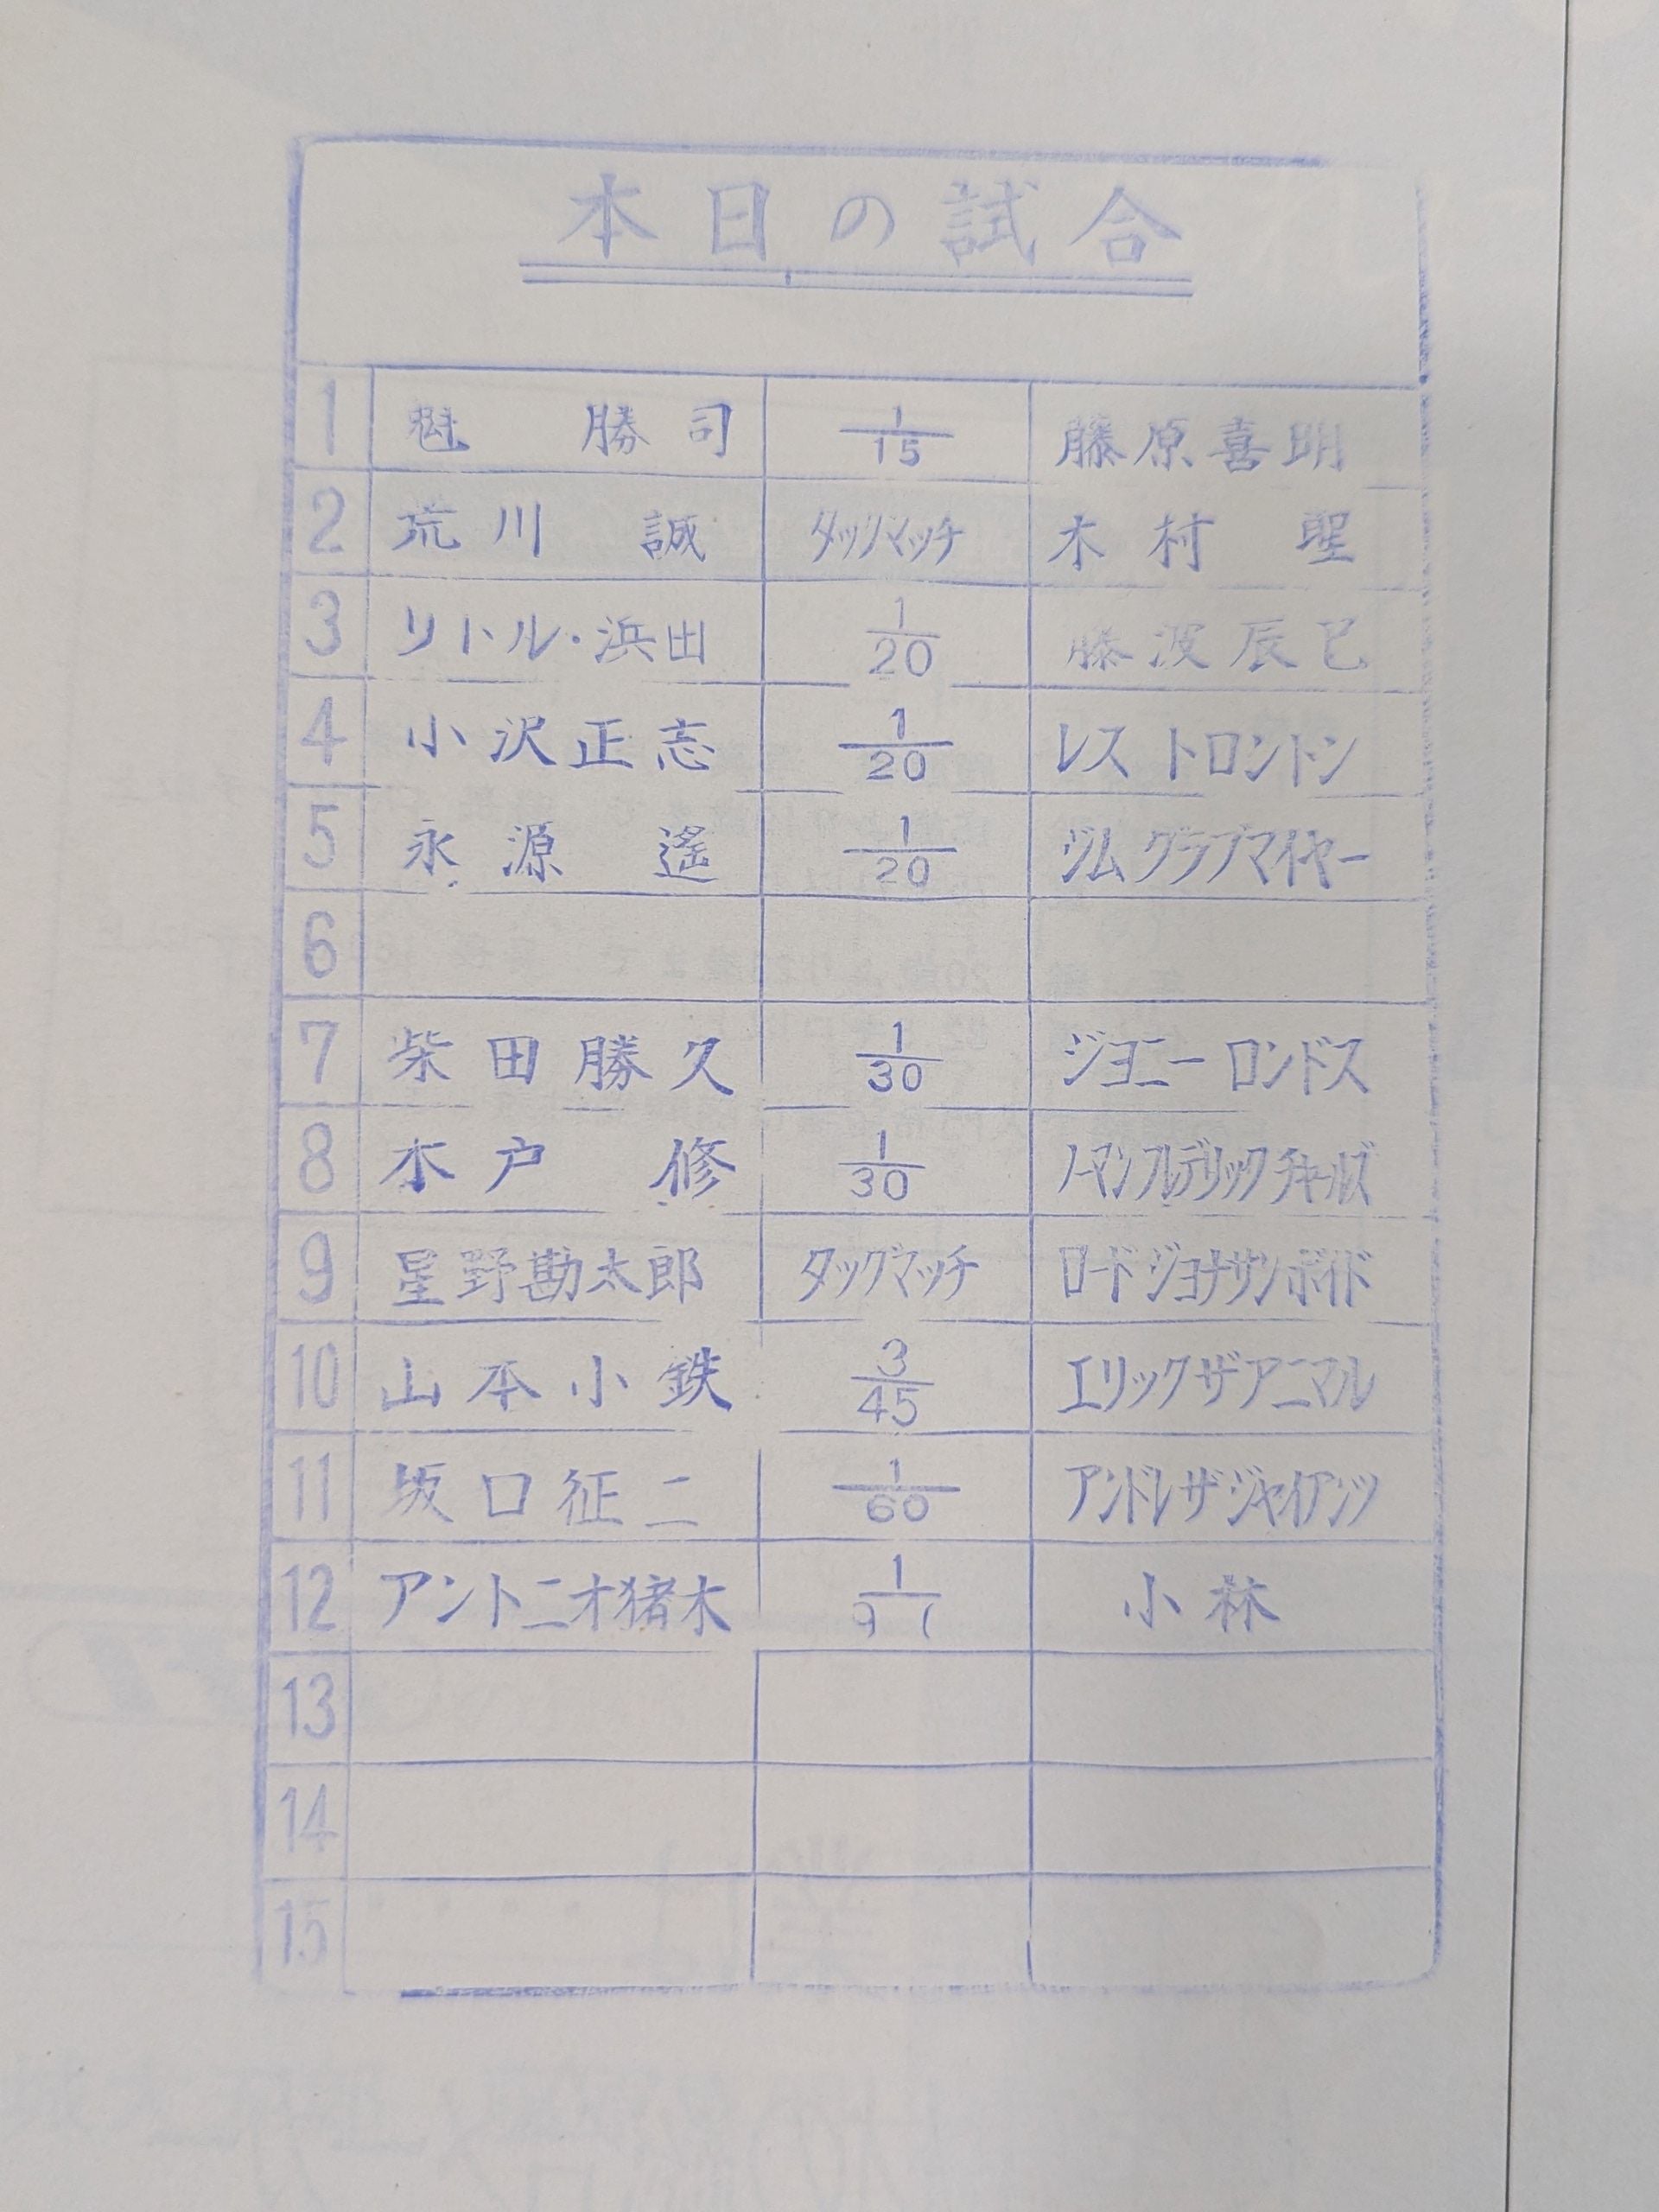 本日の試合
1 魁 勝司 1/15 藤原喜明
2 荒川 誠 タッグマッチ 木村 聖
3 リトル・浜田 1/20 藤波辰巳
4 小沢正志 1/20 レス トロントン
5 永源 遙 1/20 ジム グラブマイヤー
6
7 柴田勝久 1/30 ジョニー ロンドス
8 木戸 修 1/30 ノーマンフレデリックチャールズ
9 星野勘太郎 タッグマッチ ロードジョナサンボイド
10 山本小鉄 3/45 エリックザアニマル
11 坂口征二 1/60 アンドレザジャイアンツ
12 アントニオ猪木 1/9 小林
13
14
15